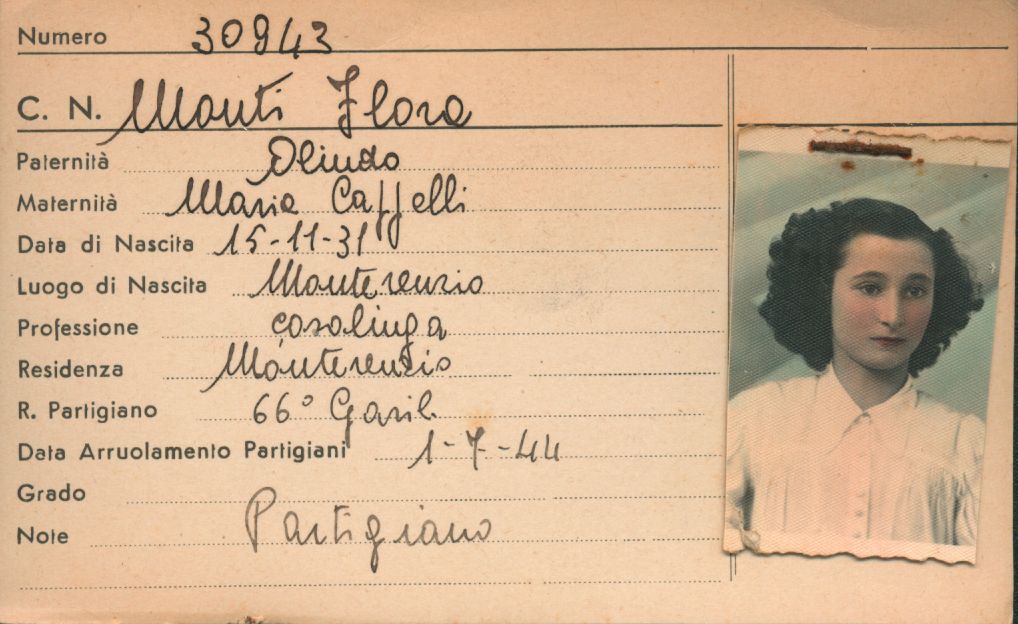 Numero 30943
C. N. Monti Flora
Paternità Olindo
Maternità Maria Caffelli
Data di Nascita 15-11-31
Luogo di Nascita Monterenzio
Professione casalinga
Residenza Monterenzio
R. Partigiano 66° Garib.
Data Arruolamento Partigiani 1-7-44
Grado
Note Partigiano